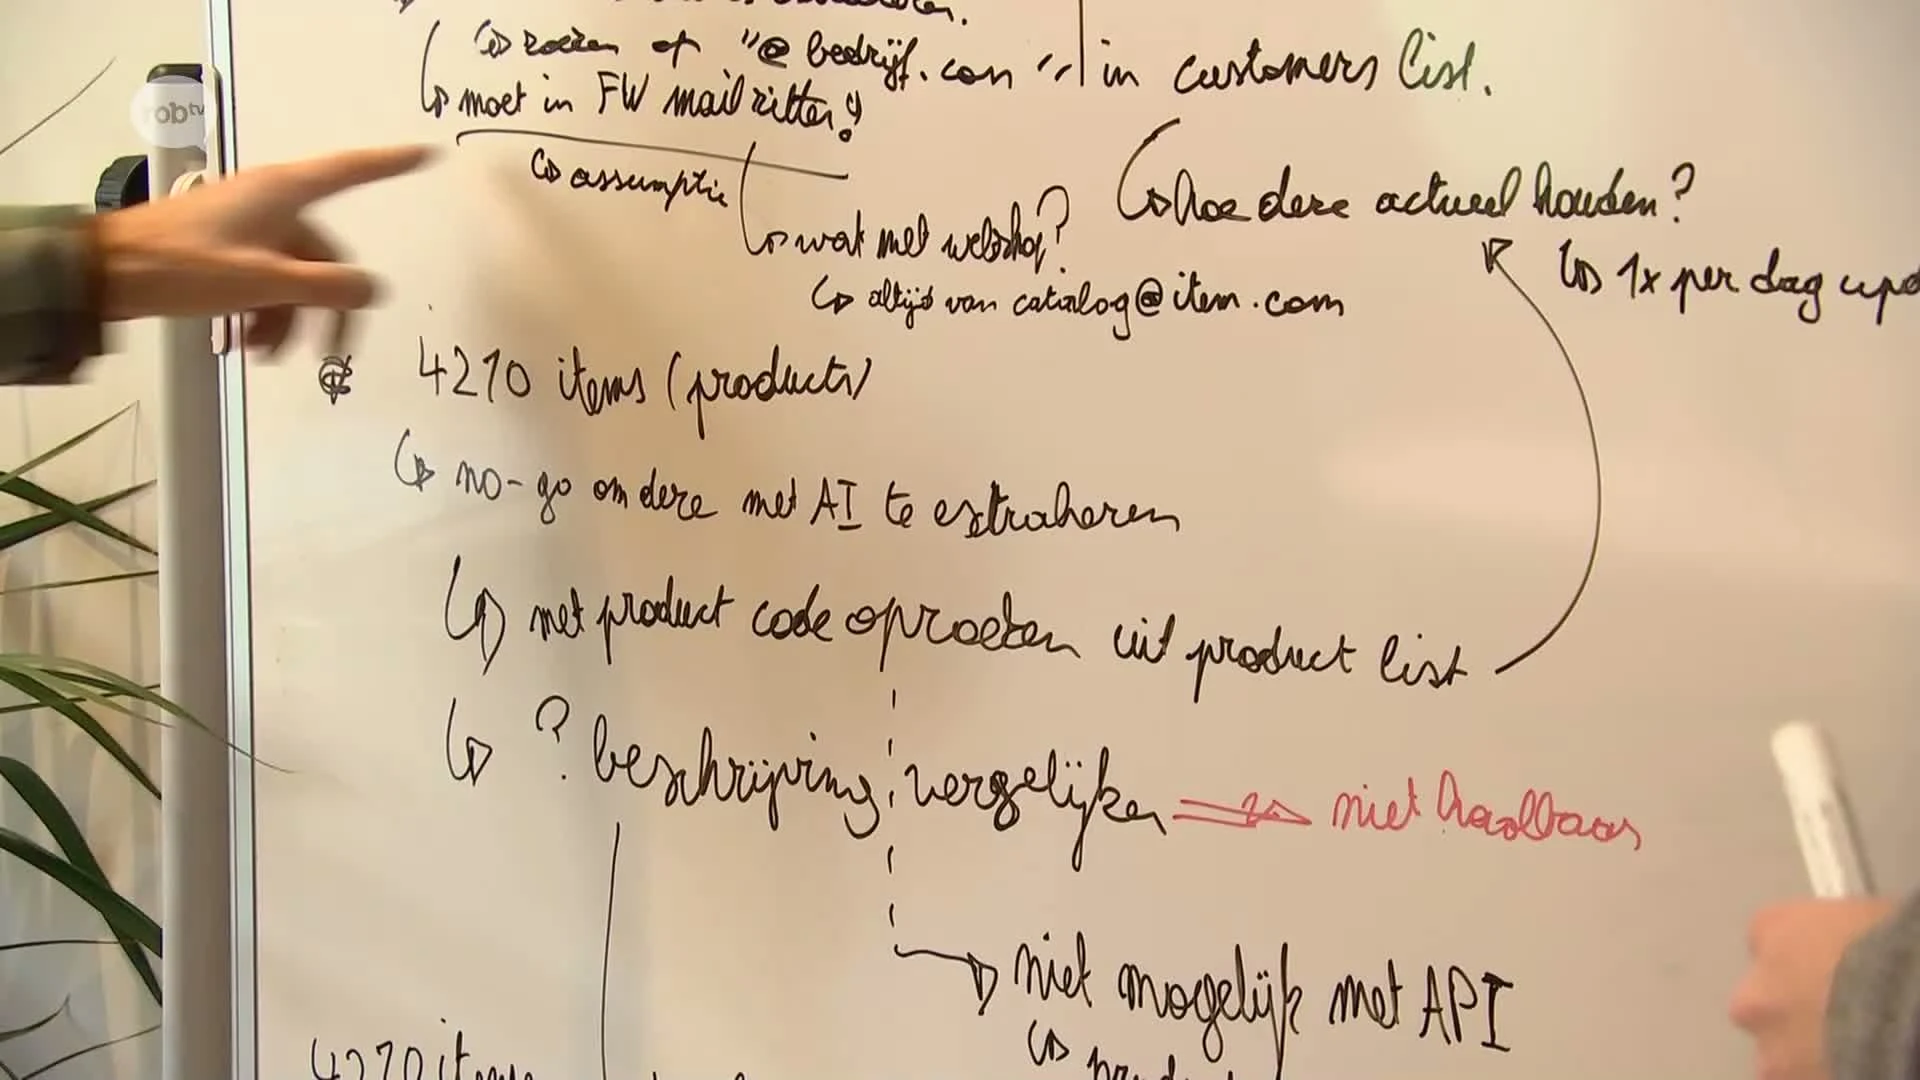 zoeken op "@bedrijf.com" in customers list.
moet in FW mail zitten!
assumptie
hoe deze actueel houden?
1x per dag upd
wat met webshop?
altijd van catalog@item.com
4270 items (products)
no-go om deze met AI te extraheren
met product code oproeken uit product list
? beschrijving vergelijken niet haalbaar
niet mogelijk met API
4270 items
robtv